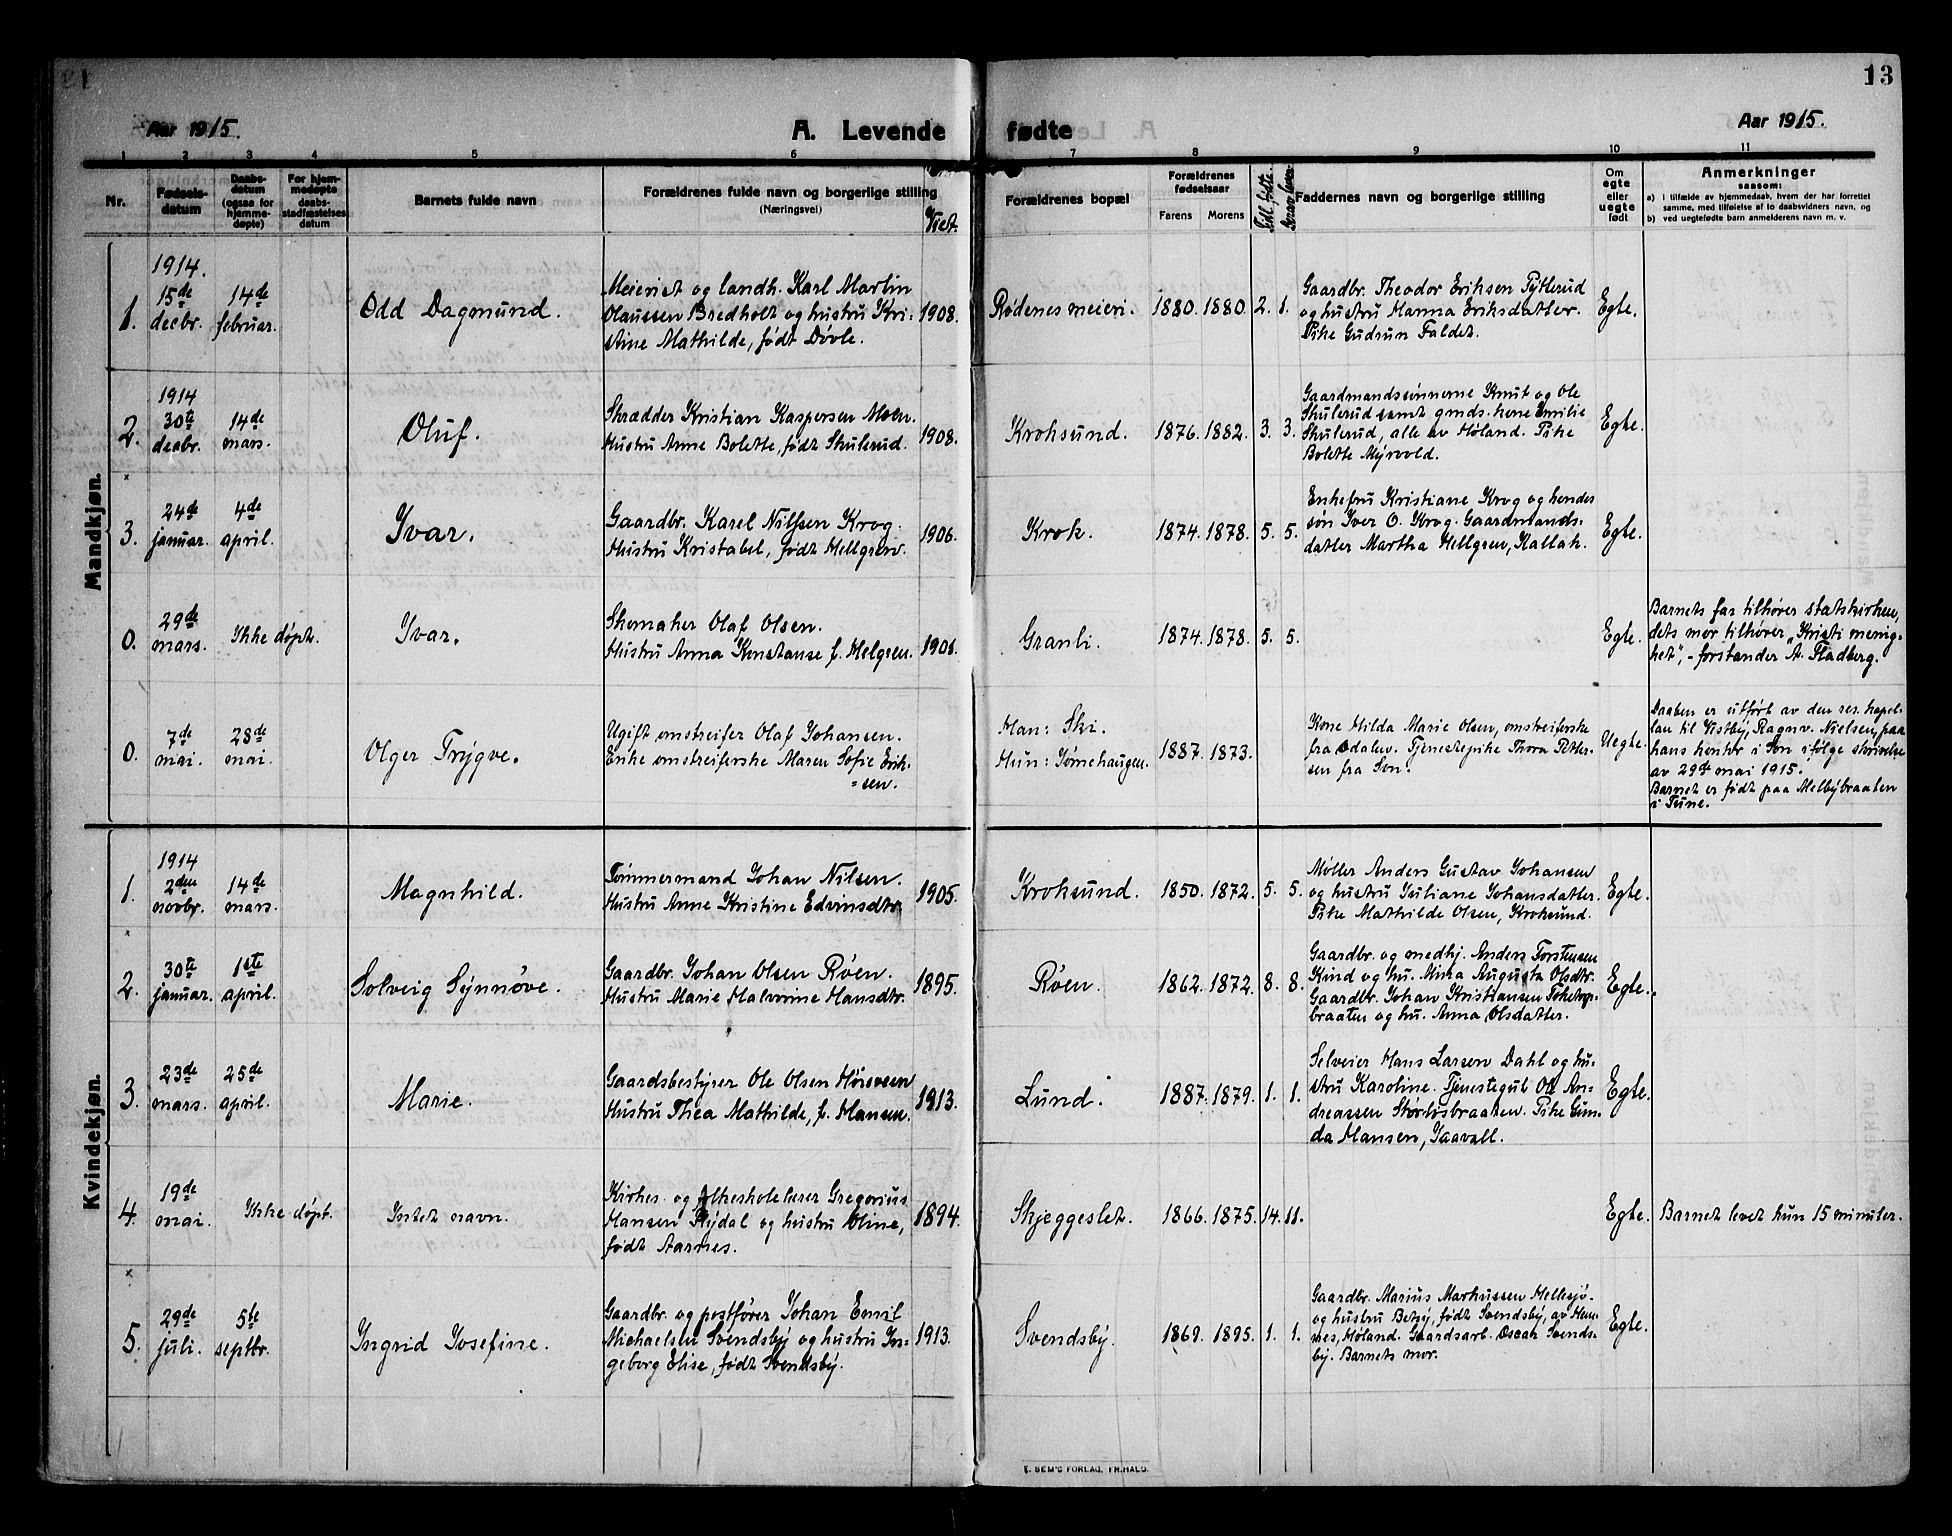 13
Aar 1915.
A. Levende fødte
Aar 1915.
1 2 3 4 5 6 7 8 9 10 11
Nr.
Fødsels-
datum
Daabs-
datum
(ogsaa for
hjemme-
døpte)
For hjem-
medøpte
daabs-
stadfæstelses
datum
Barnets fulde navn
Forældrenes fulde navn og borgerlige stilling
(Næringsvei)
Viet.
Forældrenes bopæl
Forældrenes
fødselsaar
Farens Morens
Tidl. fødte.
Derav lever.
Faddernes navn og borgerlige stilling
Om
egte
eller
uegte
født
Anmerkninger
saasom:
a) i tilfælde av hjemmedaab, hvem der har forrettet
samme, med tilføielse af to daabsvidners navn, og
b) ved uegtefødte barn anmelderens navn m. v.
Mandkjøn.
1914.
1. 15de decbr. 14de februar. Odd Dagmund.
Meieriet og landh. Karl Martin
Olaussen Bredholt og hustru Kri-
stine Mathilde, født Døvle.
1908. Rødenes meieri. 1880. 1880. 2. 1.
Gaardbr. Theodor Eriksen Tytlerud
og hustru Hanna Eriksdatter.
Pike Gudrun Faldet.
Egte.
1914
2. 30te decbr. 14de mars. Oluf.
Skrædder Kristian Kaspersen Moen.
Hustru Anne Bolette, født Skulerud.
1908. Kroksund. 1876. 1882. 3. 3.
Gaardmandssønnerne Knut og Ole
Skulerud samt gmds. kone Emilie
Skulerud, alle av Høland. Pike
Bolette Myrvold.
Egte.
x
3. 24de januar. 4de april. Ivar.
Gaardbr. Karel Nilssen Krog.
Hustru Kristabel, født Hellgren.
1906. Krok. 1874. 1878. 5. 5.
Enkefru Kristiane Krog og hendes
søn Iver O. Krog. Gaardmands-
datter Martha Hellgren, Kallak.
Egte.
0. 29de mars. Ikke døpt. Ivar.
Skomaker Olaf Olsen.
Hustru Anna Konstanse f. Helgren.
1901. Granli. 1874. 1878. 5. 5.
Egte.
Barnets far tilhører statskirken,
dets mor tilhører „Kristi menig-
het", - forstander A. Fladberg.
0. 7de mai. 28de mai. Olger Trygve.
Ugift omstreifer Olaf Johansen.
Enke omstreiferske Maren Sofie Erik-
=sen.
Man: Ski.
Hun: Tømehaugen.
1887. 1873.
Kone Hilda Marie Olsen, omstreiferske
fra Odalen. Tjenestepike Thora Peter-
sen fra Son.
Uegte.
Daaben er utført av den res. kapel-
lan til Vestby, Ragnv. Nielsen, paa
hans kontor i Son ifølge skrivelse
av 29de mai 1915.
Barnet er født paa Melbybraaten
i Tune.
Kvindekjøn.
1914
1. 2den novbr. 14de mars. Magnhild.
Tømmermand Johan Nilsen.
Hustru Anne Kristine Edvinsdtr.
1905. Kroksund. 1850. 1872. 5. 5.
Møller Anders Gustav Johansen
og hustru Juliane Johansdatter.
Pike Mathilde Olsen, Kroksund.
Egte.
x
2. 30te januar. 1ste april. Solveig Synnøve.
Gaardbr. Johan Olsen Røen.
Hustru Marie Halvorine Hansdtr.
1895. Røen. 1862. 1872. 8. 8.
Gaardbr. og medhj. Anders Torstensen
Kind og hu. Mina Augusta Olsdtr.
Gaardbr. Johan Kristiansen Toketorp-
braaten og hu. Anna Olsdatter.
Egte.
3. 23de mars. 25de april. Marie.
Gaardsbestyrer Ole Olsen Hørsveen
Hustru Thea Mathilde, f. Hansen.
1913. Lund. 1887. 1879. 1. 1.
Selveier Hans Larsen Dahl og hu-
stru Karoline. Tjenestegut Ole An-
dreassen Størlösbraaten. Pike Gun-
da Hansen, Taavall.
Egte.
4. 19de mai. Ikke døpt. Intet navn.
Kirkes. og folkeskolelærer Gregorius
Hansen Rydal og hustru Oline,
født Aarnes.
1894. Skjeggeslet. 1866. 1875. 14. 11.
Egte. Barnet levet kun 15 minuter.
x
5. 29de juli. 5te septbr. Ingrid Josefine.
Gaardbr. og postfører Johan Emil
Michaelsen Svendsby og hustru In-
geborg Elise, født Svendsby.
1913. Svendsby. 1869. 1895. 1. 1.
Gaardbr. Marius Markussen Hellesjø
og hustru Betsy, født Svendsby, av Hem-
nes, Høland. Gaardsarb. Oscar Svends-
by. Barnets mor.
Egte.
E. SEM'S FORLAG, FR.HALD.